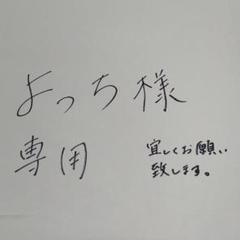 よっち様
専用
宜しくお願い
致します。